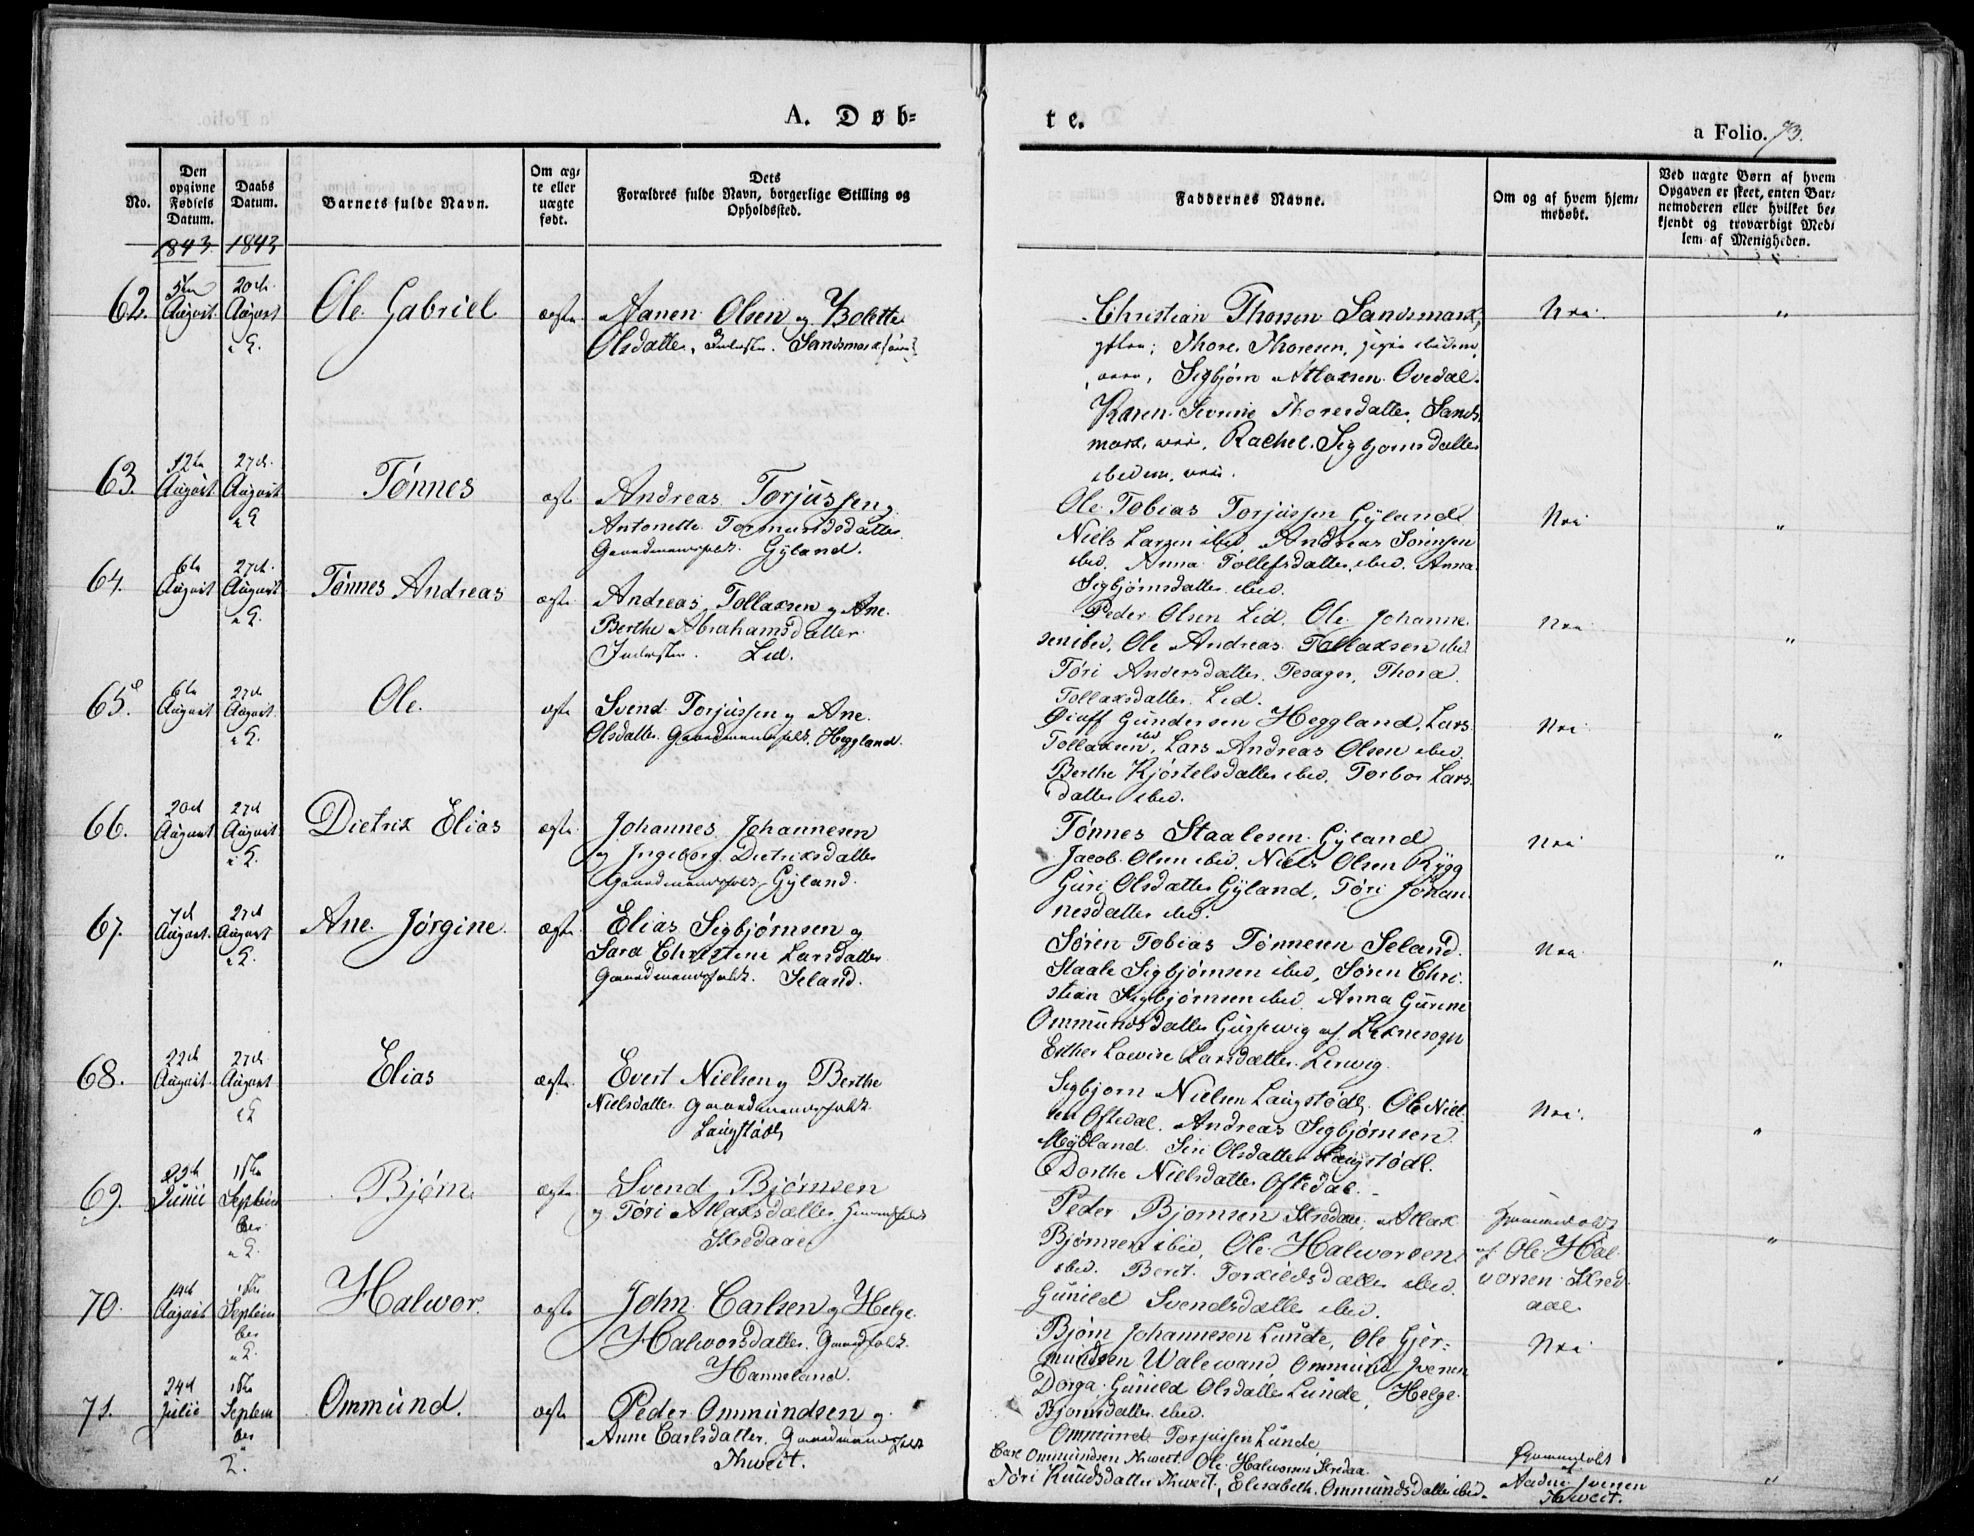 A. Døb=
te.
a Folio. 73.
No.
Den
opgivne
Fødsels
Datum.
Daabs
Datum.
Barnets fulde Navn.
Om æg-
te eller
uægte
født.
Dets
Forældres fulde Navn, borgerlige Stilling og
Opholdssted.
Faddernes Navne.
Om og af hvem hjem-
medøbt.
Ved uægte Børn af hvem
Opgaven er skeet, enten Bar-
nemoderen eller hvilket be-
kjendt og troværdigt Med-
lem af Menigheden.
1843. 1843
62.
5te
August
20de
August
Ole Gabriel
ægte
Aanen Olsen og Bolette
Olsdatter, Sandsmark
Christian Thorsen Sandsmark,
Thore Thoresen,
Sigbjørn Atlaksen Ovedal.
Karen Severine Thoresdatter Sands
mark, Rachel Sigbjørnsdatter
ibidem,
Nei
"
63.
12te
August
27de
August
Tønnes
ægte
Andreas Torjussen og
Antonette Tormundsdatter
Gaardmandsfolk. Gÿland.
Ole Tobias Torjussen Gÿland
Niels Larsen ibid Andreas Sørensen
ibid. Anna Tollefsdatter, ibid. Anna
Sigbjørnsdatter ibid.
Nei
"
64.
6te
August
27de
August
Tønnes Andreas
ægte
Andreas Tollaksen og Ane
Berthe Abrahamsdatter
Inderster. Lid.
Peder Olsen Lid. Ole Johanne
sen ibid, Ole Andreas Tollaksen ibid
Tøri Andersdatter, Tesager, Thora
Tollaksdatter Lid.
Nei
"
65.
6te
August
27de
August
Ole.
ægte
Svend Torjussen og Ane
Olsdatter Gaardmandsfolk, Heggland.
Gundersen Heggland, Lars
Tollaksen ibid, Lars Andreas Olsen ibid,
Berthe Kjøstelsdatter ibid, Torbor Lars
datter ibid.
Nei
"
66.
20de
August
27de
August
Dietrik Elias
ægte
Johannes Johannesen
og Ingeborg Dietriksdatter
Gaardmandsfolk, Gÿland.
Tønnes Staalesen Gÿland
Jacob Olsen ibid, Niels Olsen Rÿgg
Guri Olsdatter Gÿland, Tøri Johan
nesdatter ibid.
Nei
"
67.
7de
August
27de
August
Ane Jørgine.
ægte
Elias Sigbjørnsen og
Sara Christine Larsdatter
Gaardmandsfolk. Seland.
Søren Tobias Tønnesen Seland.
Staale Sigbjørnsen ibid, Søren Chri
stian Sigbjørnsen ibid Anna Gurine
Ommundsdatter
Esther Lovise Larsdatter Lervig.
Nei
"
68.
22de
August
27de
August
Elias
ægte
Evert Nielsen og Berthe
Nielsdatter Gaardmandsfolk
Laugstødl
Sigbjørn Nielsen Laugstødl, Ole Niel
sen Oftedal. Andreas Sigbjørnsen
Mÿdland Siri Olsdatter Laugstødl.
Dorthe Nielsdatter Oftedal.
Nei.
"
69.
Junii
Septem
ber
Bjørn
ægte
Svend Bjørnsen
og Tøri Atlaksdatter
Skredaae
Peder Bjørnsen Skredaae, Atlak
Bjørnsen ibid, Ole Halvorsen
ibid. Berit Torkildsdatter ibid.
Gunild Svendsdatter ibid.
Hjemmedøbt
af Ole Hal
vorsen Skred
aae
"
70.
14de
August
Septem
ber
Halvor.
ægte
John Carlsen og Helge
Halvorsdatter. Gaardfolk.
Hanneland.
Bjørn Johannesen Lunde, Ole Gjer-
mundsen Walevand Ommund Iversen
Dorga. Gunild Olsdatter Lunde, Helge
Bjørnsdatter ibid.
Nei
"
71.
24de
Julii
Septem
ber
Ommund.
ægte
Peder Ommundsen og
Anne Carlsdatter. Gaardmandsfolk
Thveit.
Ommund Torjussen Lunde,
Carl Ommundsen Thveit. Ole Halvorsen Skredaa.
Tøri Knudsdatter Thveit, Elisabeth Ommundsdatter ibid.
Hjemmedøbt
af
Aadne Iversen
Thveit.
"